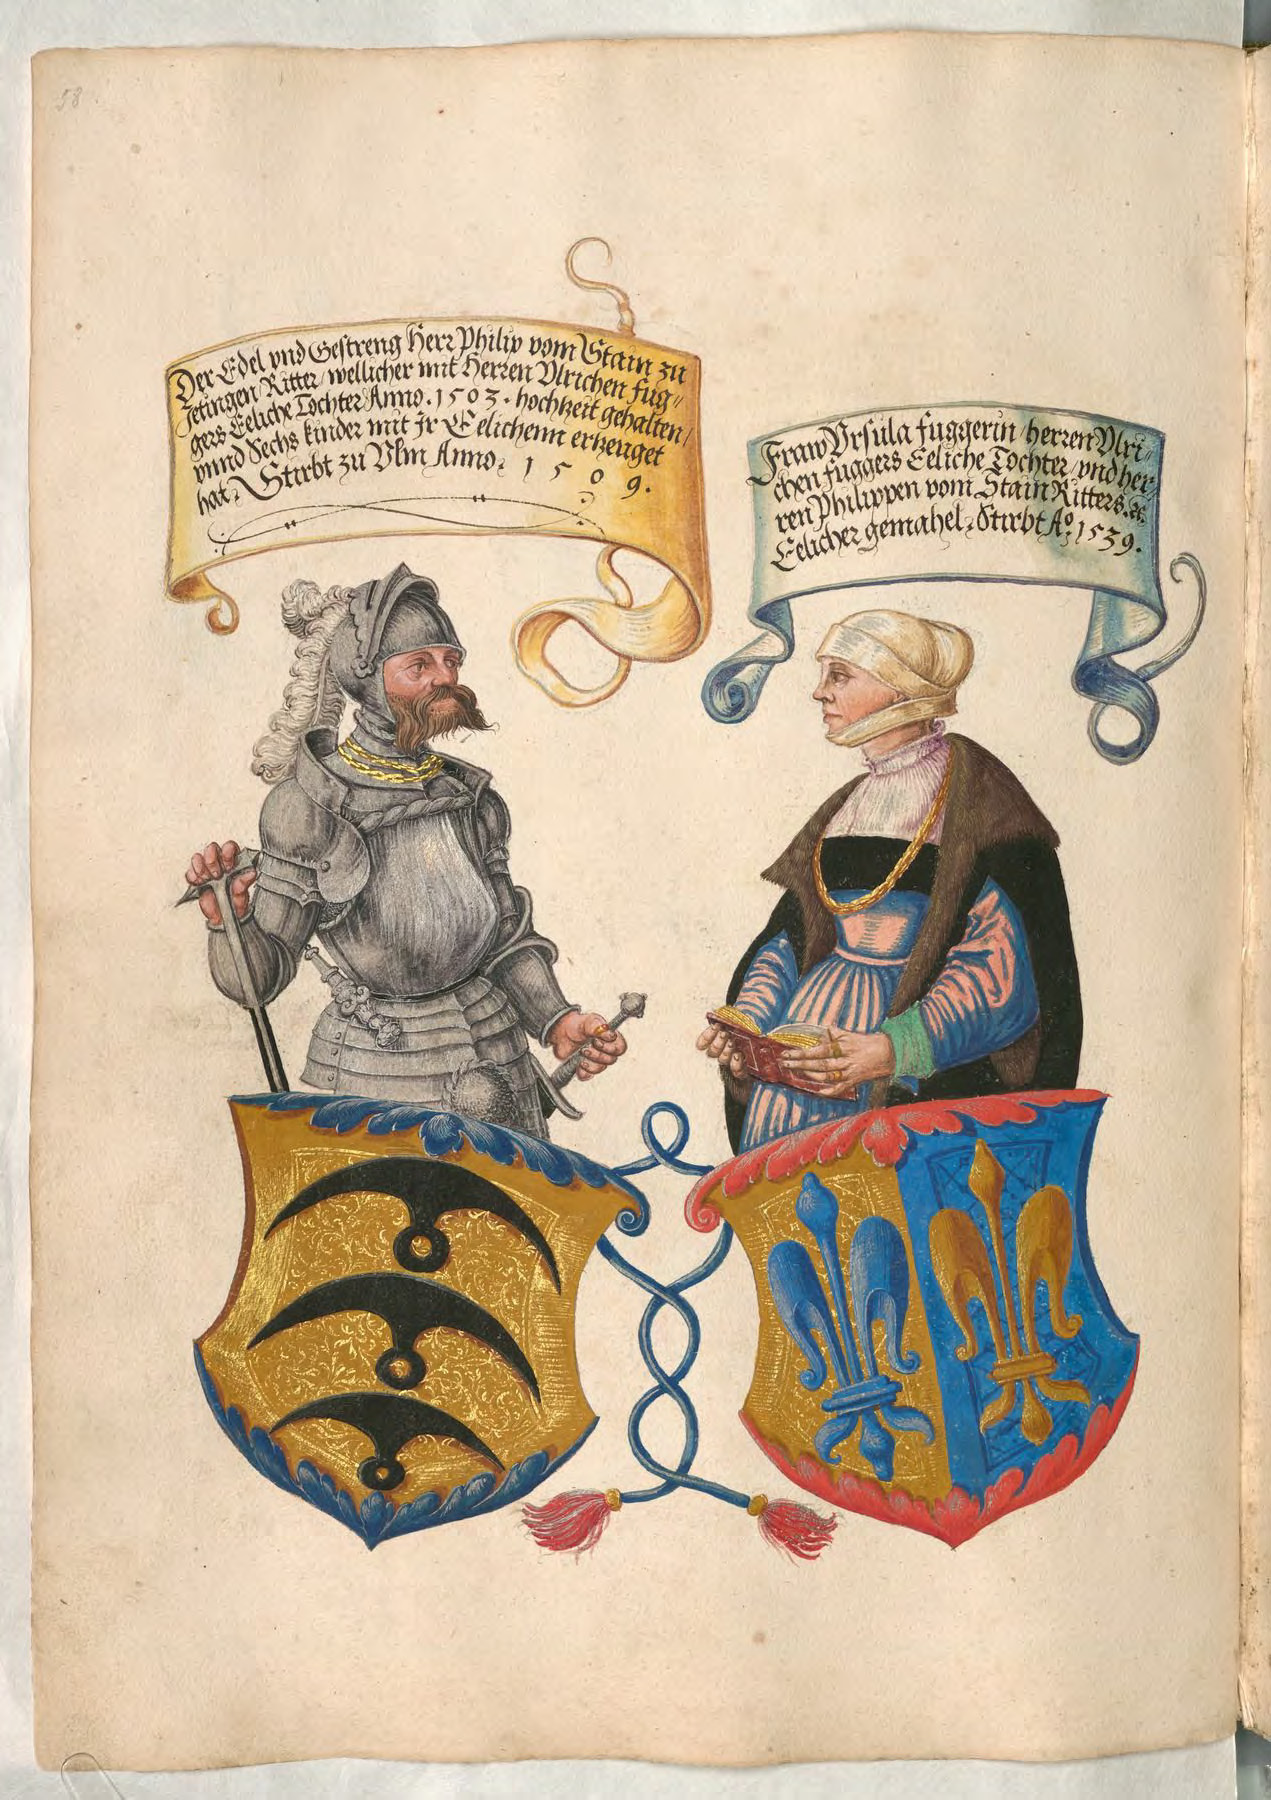 58
Der Edel vnd Gestreng Herr Philip vom Stain zu
Jetingen Ritter / wellicher mit Herren Vlrichen Fug⸗
gers Eeliche Tochter Anno . 1503 . hochzeit gehalten /
vnnd Sechs kinder mit Ir Eelichenn erzeuget
hat , Stirbt zu Vlm Anno , 1 5 0 9 .
Fraw Vrsula Fuggerin / herren Vlri⸗
chen Fuggers Eeliche Tochter / vnd her⸗
ren Philippen vom Stain Ritters . &c.
Eelicher gemahel , Stirbt Aº . 1539 .